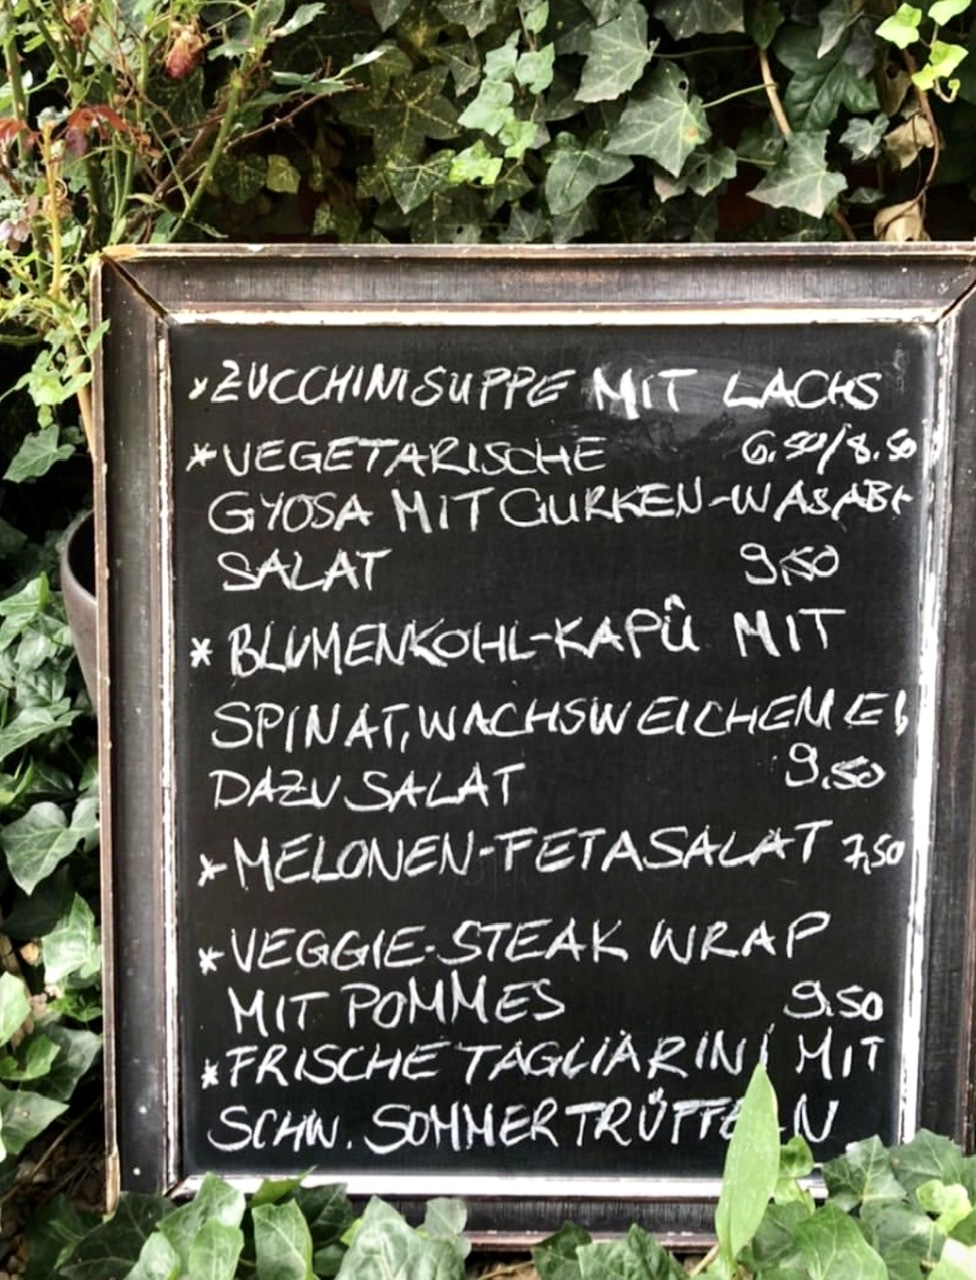 *ZUCCHINISUPPE MIT LACHS
6.50/8.50
*VEGETARISCHE
GYOSA MIT GURKEN-WASABI
SALAT 9,50
*BLUMENKOHL-KAPÛ MIT
SPINAT, WACHSWEICHEM EI,
DAZU SALAT 9.50
*MELONEN-FETASALAT 7,50
*VEGGIE-STEAK WRAP
MIT POMMES 9.50
*FRISCHE TAGLIARINI MIT
SCHW. SOMMERTRÜFFELN